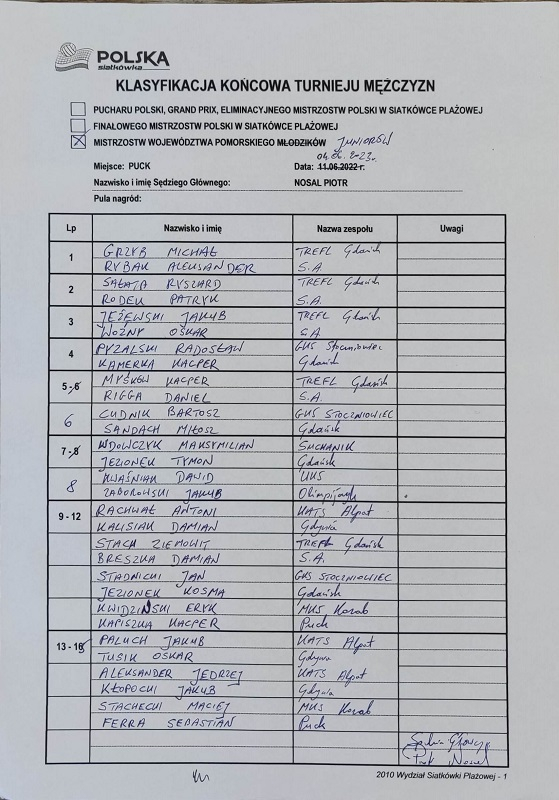 POLSKA
siatkówka
KLASYFIKACJA KOŃCOWA TURNIEJU MĘŻCZYZN
PUCHARU POLSKI, GRAND PRIX, ELIMINACYJNEGO MISTRZOSTW POLSKI W SIATKÓWCE PLAŻOWEJ
FINAŁOWEGO MISTRZOSTW POLSKI W SIATKÓWCE PLAŻOWEJ
MISTRZOSTW WOJEWÓDZTWA POMORSKIEGO MŁODZIKÓW JUNIORÓW
Miejsce: PUCK Data: 11.06.2022 r.
Nazwisko i imię Sędziego Głównego: NOSAL PIOTR
Pula nagród:
Lp Nazwisko i imię Nazwa zespołu Uwagi
1 GRZYB MICHAŁ TREFL Gdańsk
RYBAK ALEKSANDER S.A.
2 SAŁATA RYSZARD TREFL Gdańsk
RODEK PATRYK S.A.
3 JEŻEWSKI JAKUB TREFL Gdańsk
WOŹNY OSKAR S.A.
4 PYZALSKI RADOSŁAW GKS Stoczniowiec
KAMERKA KACPER Gdańsk
5 - 6 MYŚKÓW KACPER TREFL Gdańsk
RIGGA DANIEL S.A.
6 CUDNIK BARTOSZ GKS STOCZNIOWIEC
SANDACH MIŁOSZ Gdańsk
7 - 8 WDOWCZYK MAKSYMILIAN SUCHANIK
JEZIONEK TYMON Gdańsk
8 KWAŚNIAK DAWID UKS
ZABOROWSKI JAKUB
9 - 12 RACHWAŁ ANTONI KATS Alpat
KALISIAK DAMIAN Gdynia
STACH ZIEMOWIT TREFL Gdańsk
BRESZKA DAMIAN S.A.
STADNICKI JAN GKS STOCZNIOWIEC
JEZIONEK KOSMA Gdańsk
KWIDZIŃSKI ERYK MKS Korab
KAPISZKA KACPER Puck
13 - 16 PALUCH JAKUB KATS Alpat
TUSIK OSKAR Gdynia
ALEKSANDER JĘDRZEJ KATS Alpat
KŁOPOCKI JAKUB Gdynia
STACHECKI MACIEJ MKS Korab
FERRA SEBASTIAN Puck
2010 Wydział Siatkówki Plażowej - 1